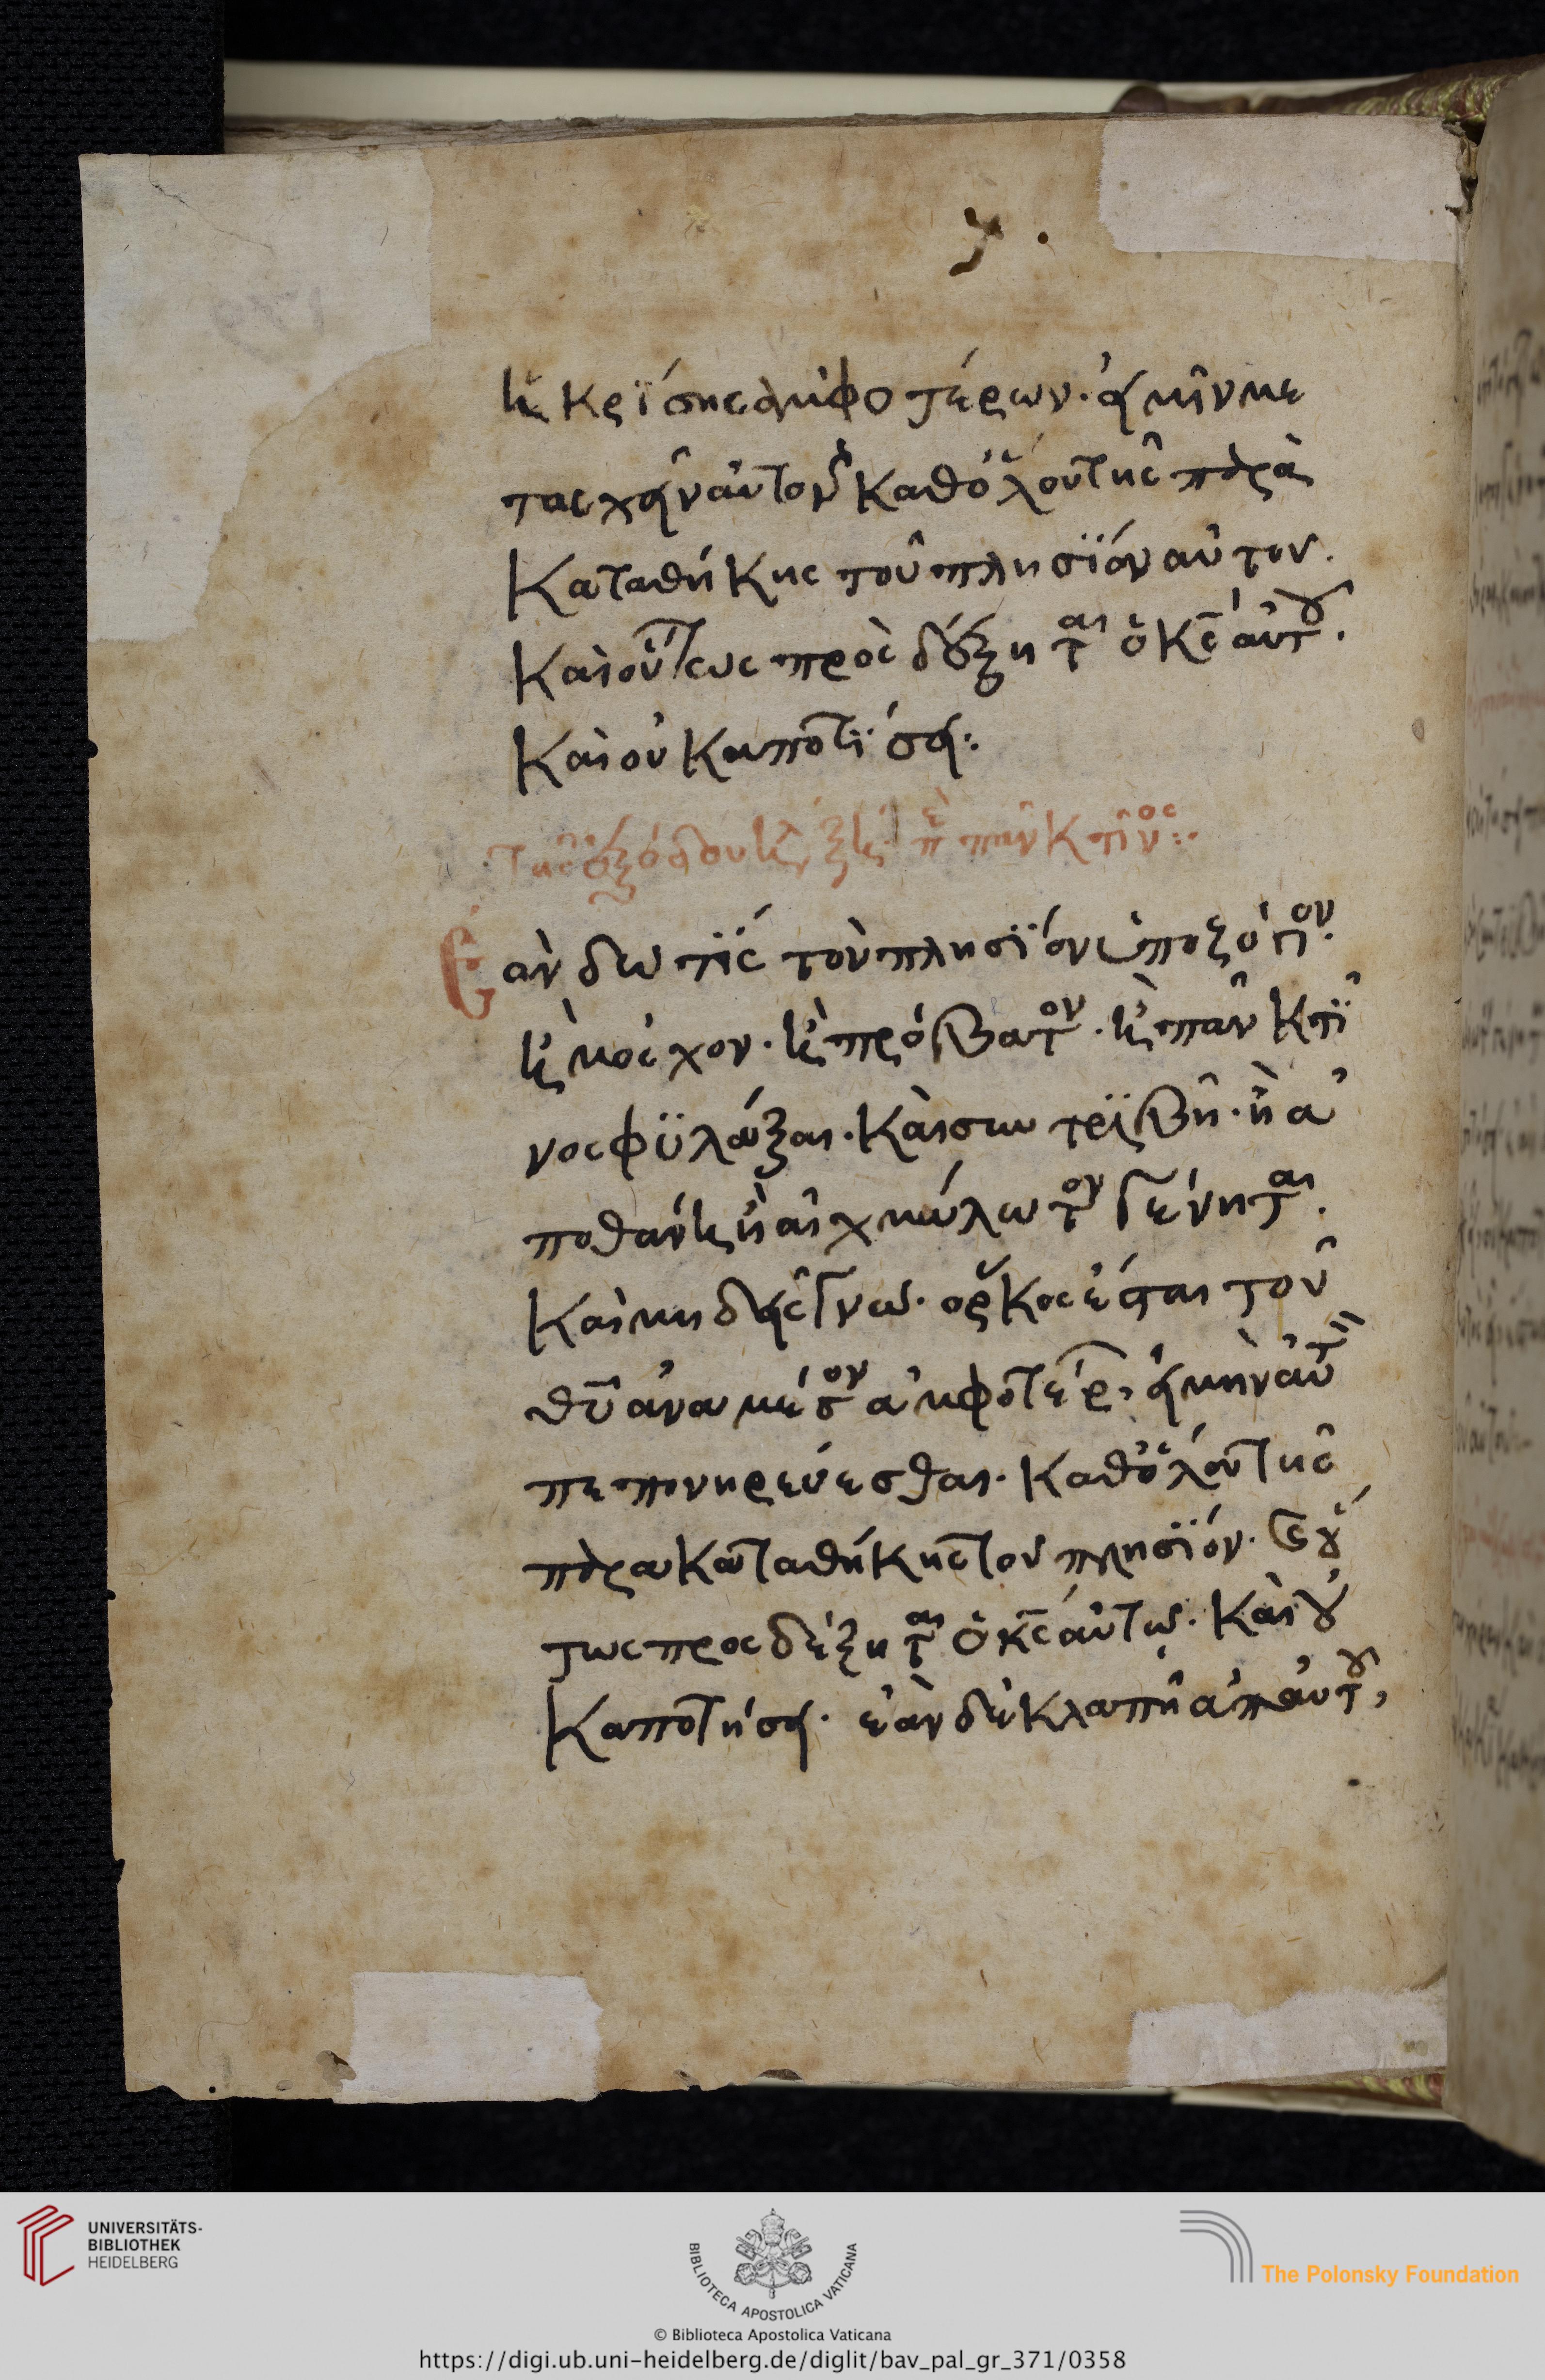 κρϊσης ἀμφοτέρων. εἰ μῆν με
τασχεῖν αὐτὸν καθόλου τῆς παρὰ
καταθήκης τοῦ πλησϊόν αὐτου.
καὶ οὕτως προς δέξηται ὁ κς αὐτου.
καὶ οὐκ αποτϊσει:
τῆς ἐξόδου περὶ παν κτῖνος:
Ἐὰν δω τϊς τὸν πλησϊόν ὑποζύγιον.
κ μόσχον. κ πρόβατον. κ παν κτϊ
νος φϋλάξαι. καὶ σω τρϊβῆ. ἢ ἀ
ποθάνει ἢ αἰχμάλωτον γένηται.
καὶ μηδεὶς γνω. ορκος ἔσται τοῦ
θῦ ἀνα μέσον ἀμφοτέρ, εἰ μὴν αὐτ
πεπονηρεύεσθαι. καθόλου τῆς
παρακαταθήκης του πλησϊόν. καὶ οὕ
τως προς δέξηται ὁ κς αὐτω. καὶ οὐ
κ αποτήσει. ἐὰν δὲ κλαπῆ ἀπ αὐτου,
UNIVERSITÄTS-
BIBLIOTHEK
HEIDELBERG
BIBLIOTECA APOSTOLICA VATICANA
The Polonsky Foundation
© Biblioteca Apostolica Vaticana
https://digi.ub.uni-heidelberg.de/diglit/bav_pal_gr_371/0358